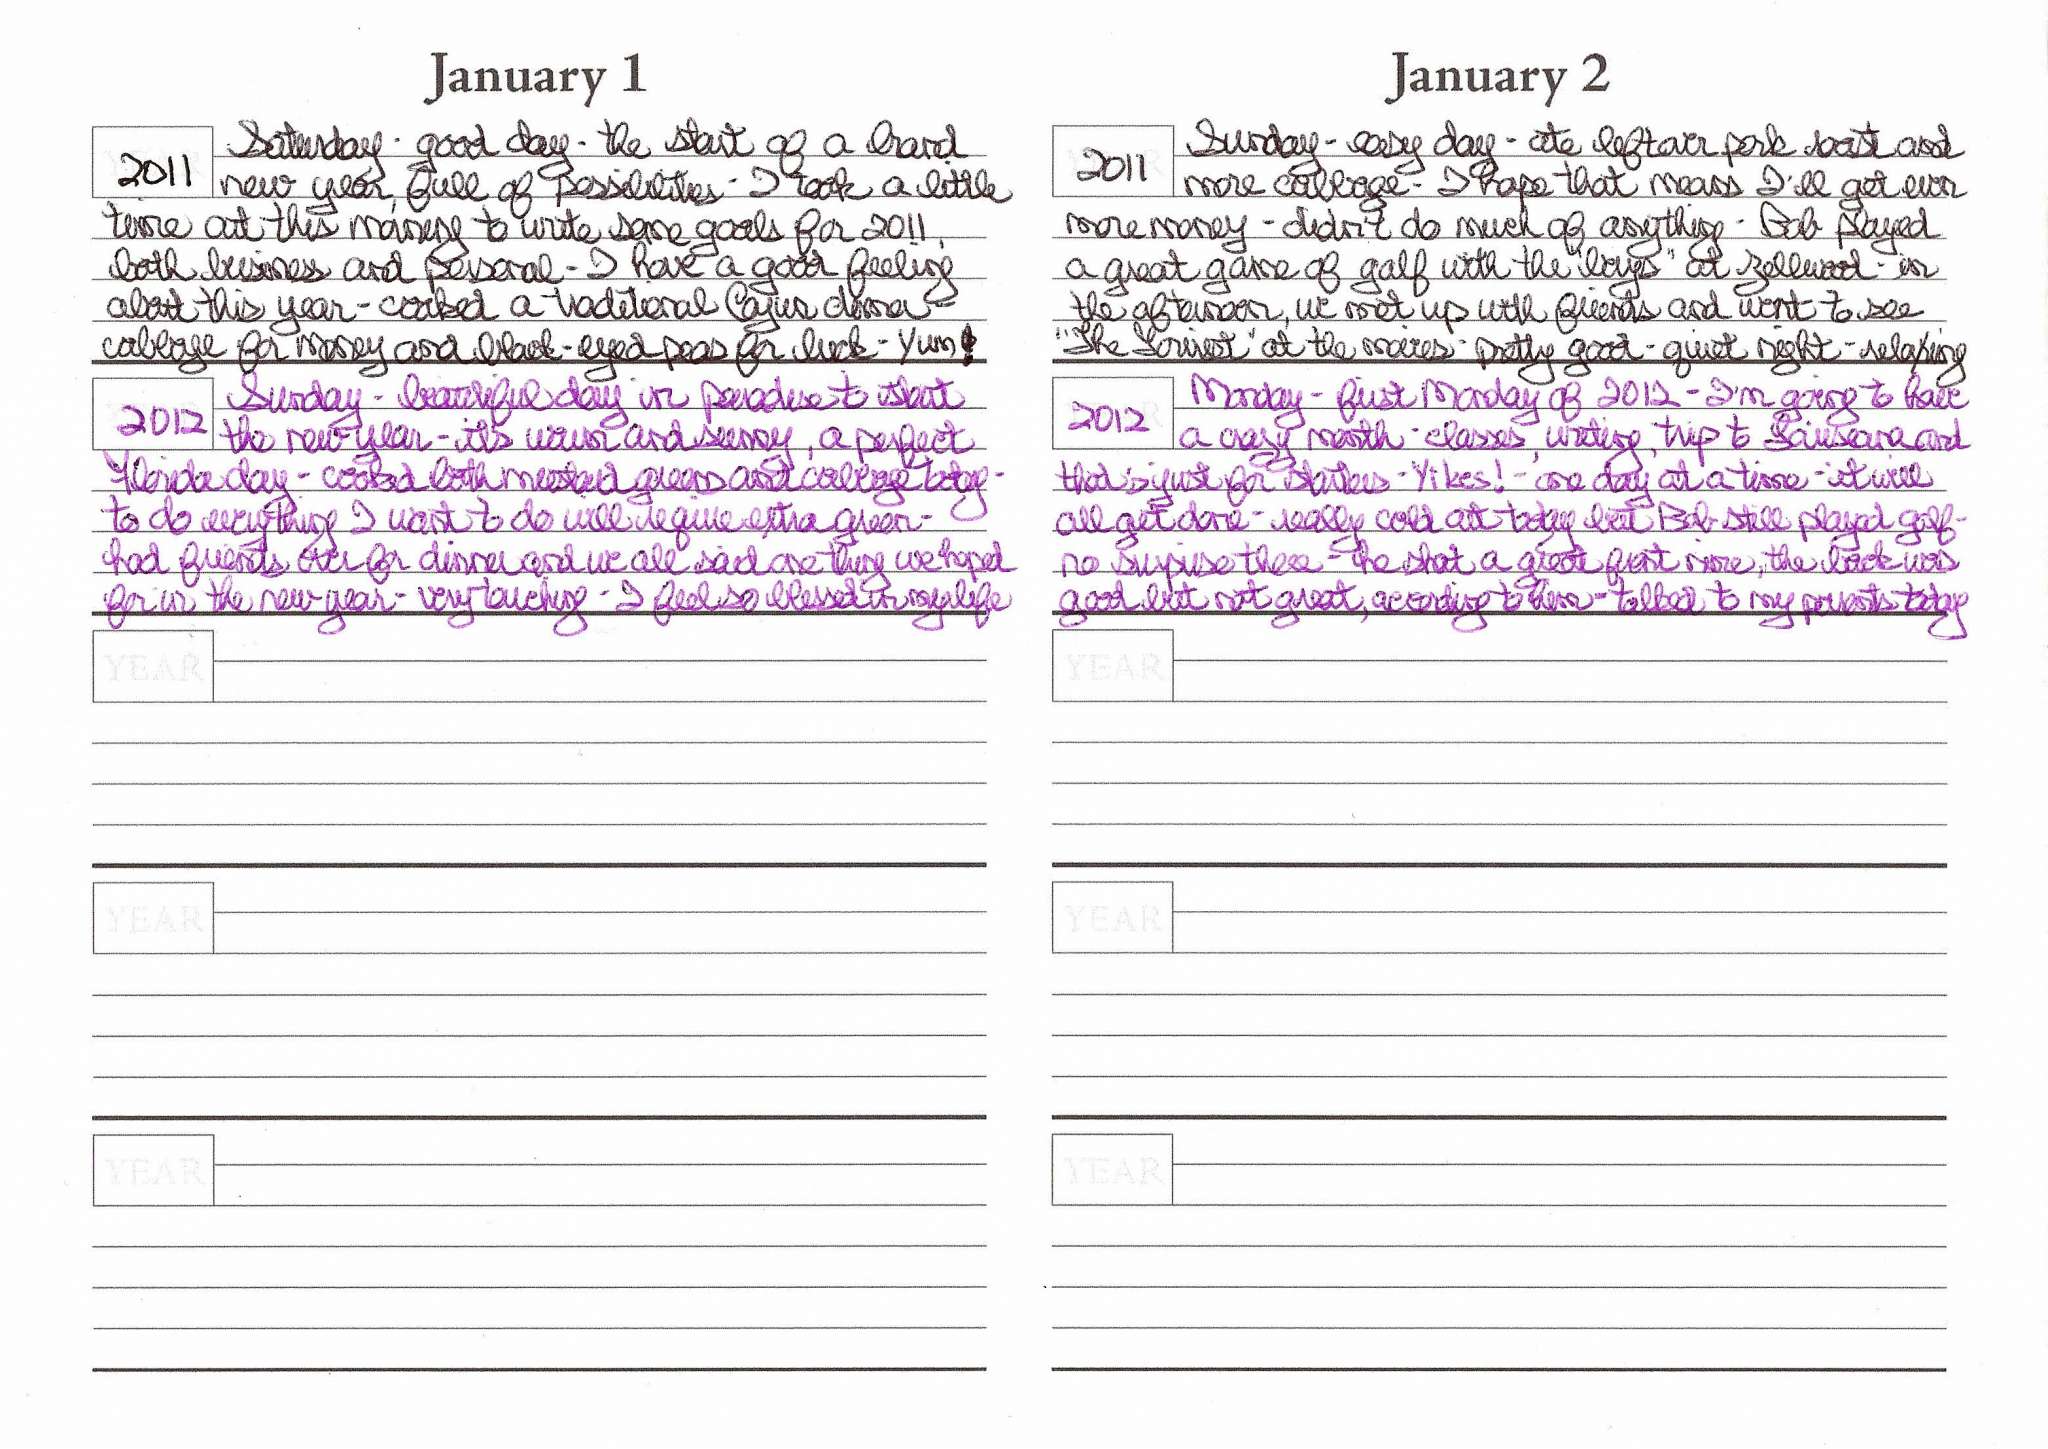 January 1
2011
Saturday - good day - the start of a brand
new year, full of possibilities - I took a little
time out this morning to write some goals for 2011,
both business and personal - I have a good feeling
about this year - cooked a traditional Cajun dinner -
cabbage for money and black-eyed peas for luck - Yum!
2012
Sunday - beautiful day in paradise to start
the new year - it's warm and sunny, a perfect
Florida day - cooked both mustard greens and cabbage today -
to do everything I want to do will require extra green -
had friends over for dinner and we all said one thing we hoped
for in the new year - very touching - I feel so blessed in my life
YEAR
YEAR
YEAR
January 2
2011
Sunday - easy day - ate leftover pork roast and
more cabbage - I hope that means I'll get even
more money - didn't do much of anything - Bob played
a great game of golf with the "boys" at Zellwood - in
the afternoon, we met up with friends and went to see
"The Tourist" at the movies - pretty good - quiet night - relaxing
2012
Monday - first Monday of 2012 - I'm going to have
a crazy month - classes, writing, trip to Louisiana and
that's just for starters - Yikes! - one day at a time - it will
all get done - really cold out today but Bob still played golf -
no surprise there - he shot a great front nine, the back was
good but not great, according to him - talked to my parents today
YEAR
YEAR
YEAR